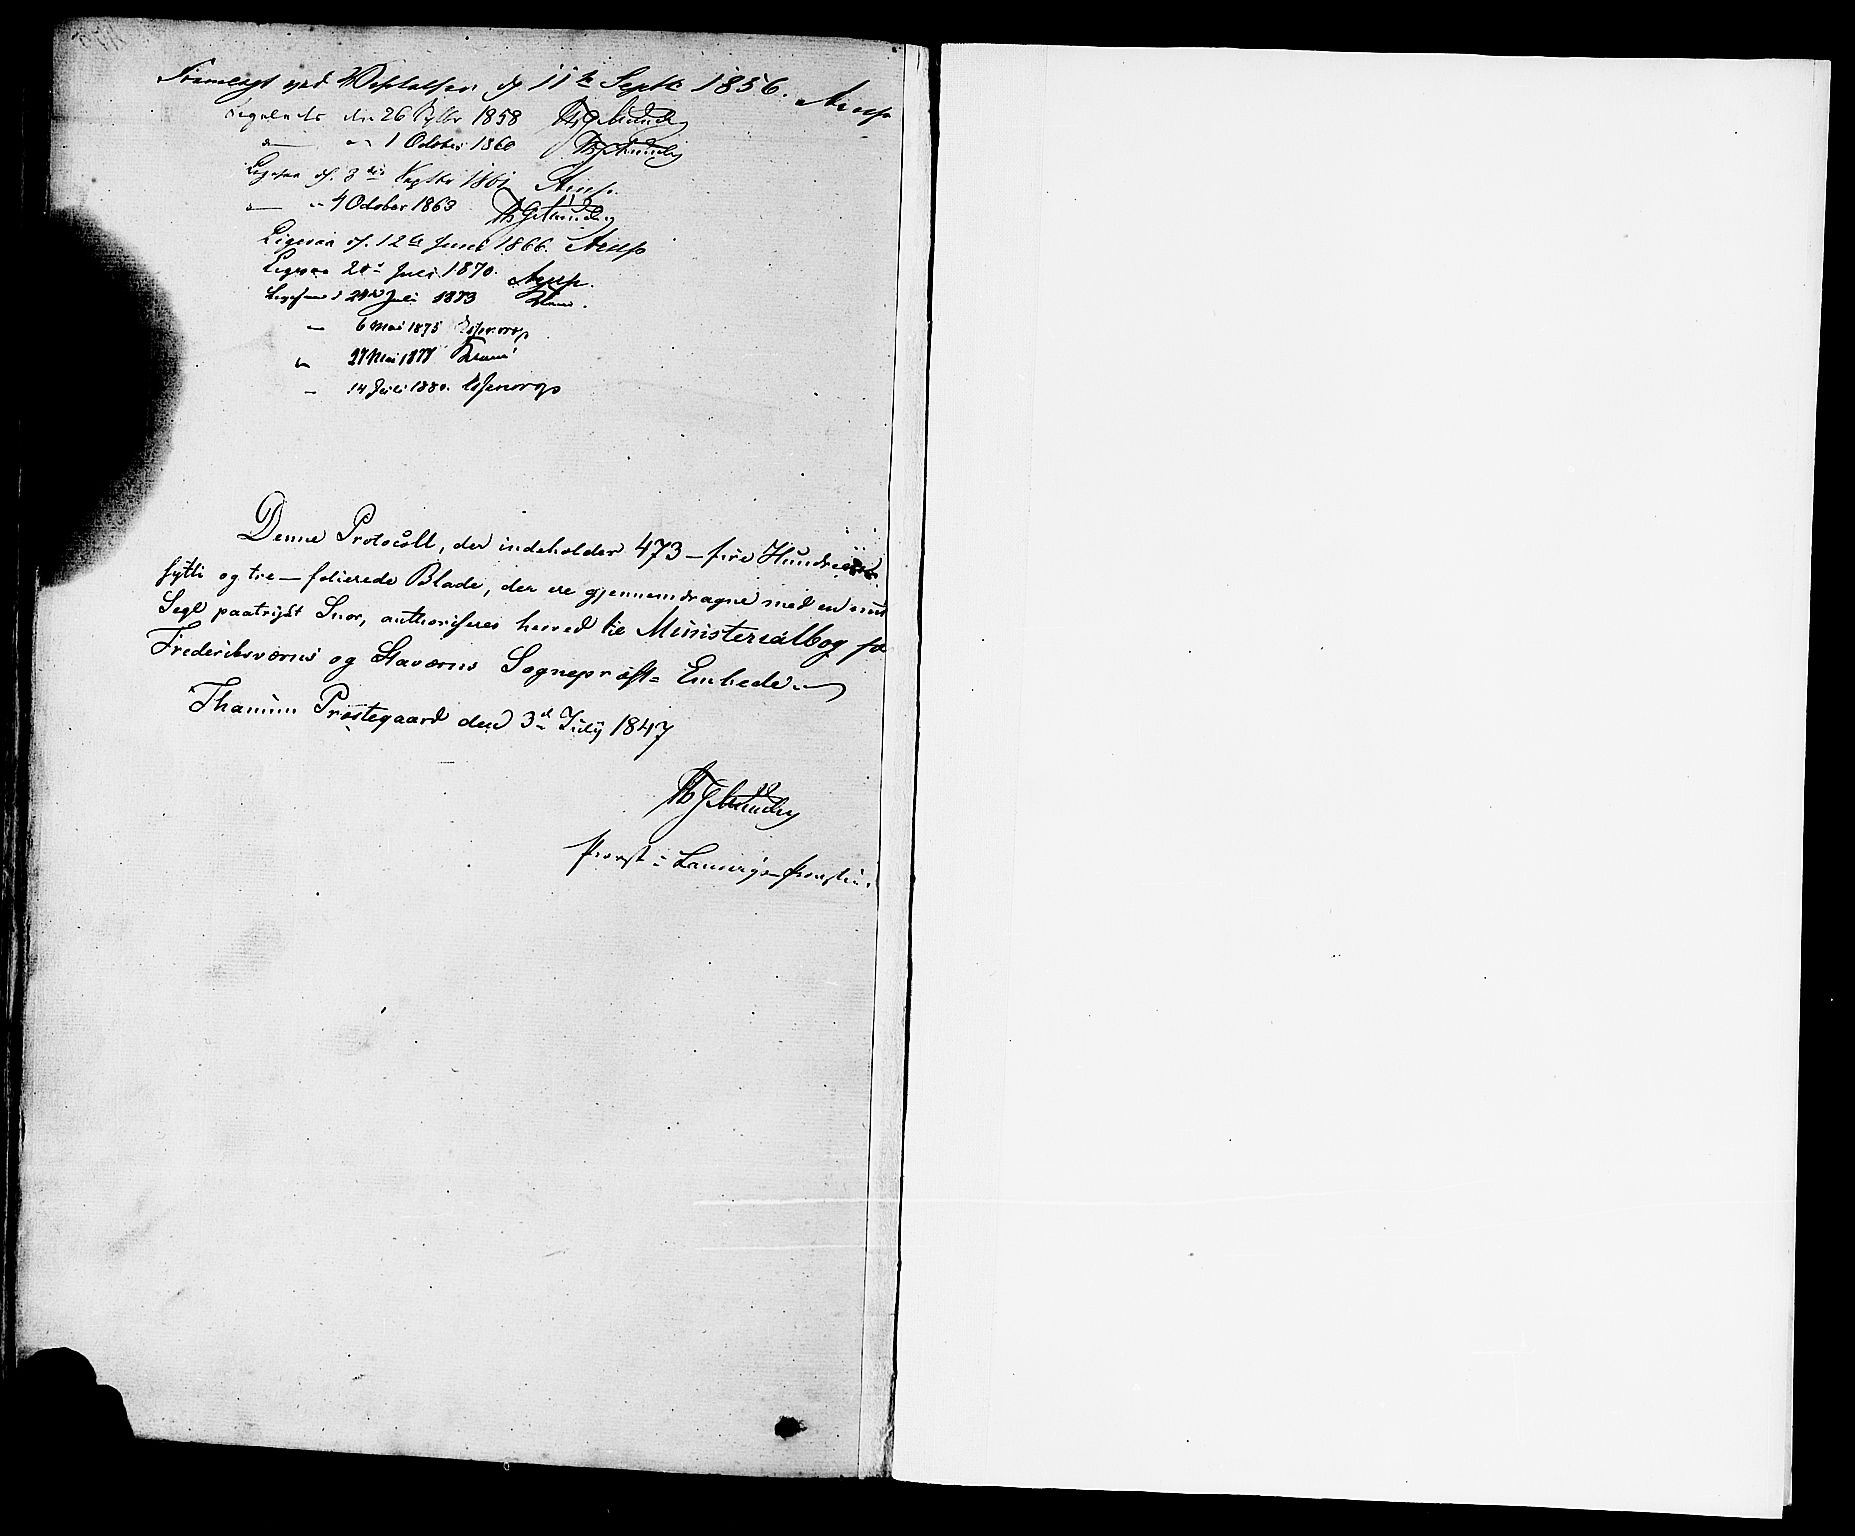 Fremlagt ved Visitatsen d. 11te Septb 1856. Arup
Ligeledes den 26 Septbr 1858 Th G Münster
— " 1 October 1860 Th G Münster
Ligesaa d. 8de Septbr 1861 Arup.
— " 4 October 1863
Ligesaa d. 12te Juni 1866. Arup
Ligesaa Juli 1870. Arup.
Ligesaa d Juli 1873
— 6 Mai 1875 Essendrop
" 27 Mai 1877
— 14 Juli 1880. Essendrop
Denne Protocoll, der indeholder 473 – fire Hundrede
sytti og tre – folierede Blade, der ere gjennemdragne med en med
Segl paatrykt Snor, authoriseres herved til Ministerialbog for
Frederiksværns og Staværns Sognepræst= Embede.
Thanum Præstegaard den 3d July 1847
Provst i Laurvigs Provstie.